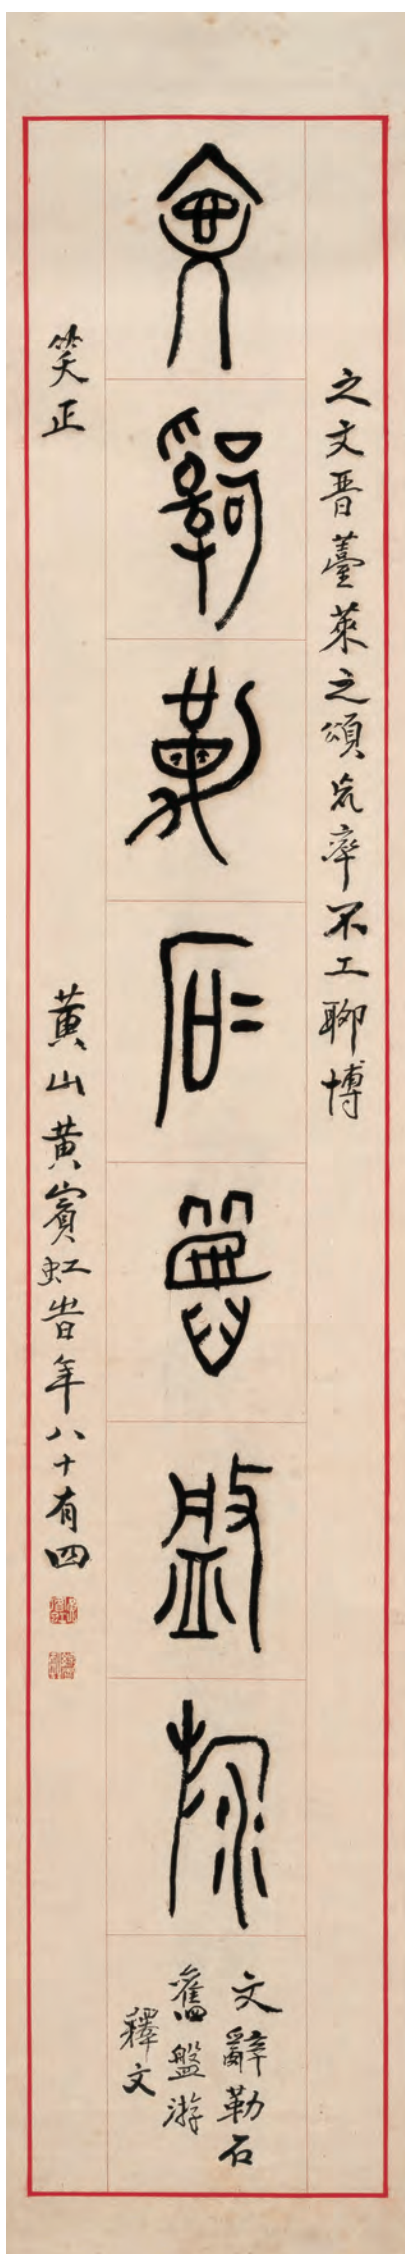 之文晋薹萊之頌荒率不工聊博
文辭勒石舊盤游
文辭勒石
舊盤游
釋文
笑正
黃山黃賓虹旹年八十有四